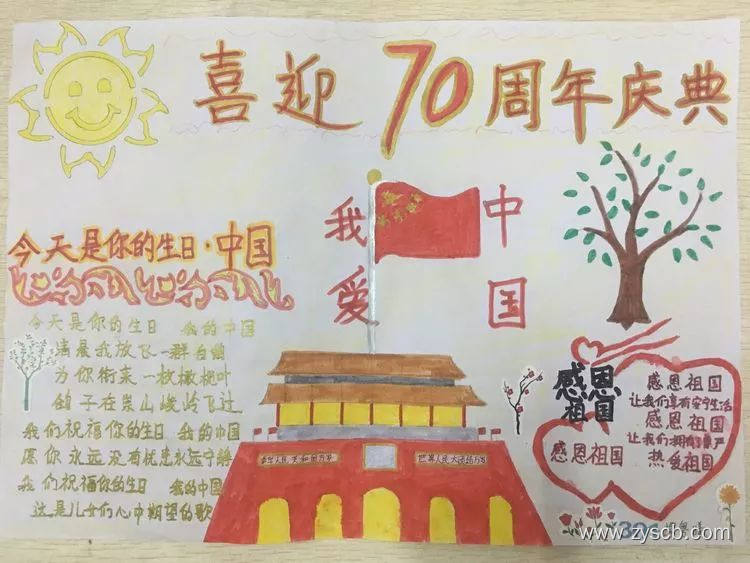 喜迎70周年庆典
我爱
中国
今天是你的生日·中国
今天是你的生日 我的中国
清晨我放飞一群白鸽
为你衔来一枚橄榄叶
鸽子在崇山峻岭飞过
我们祝福你的生日 我的中国
愿你永远没有忧患永远宁静
我们祝福你的生日 我的中国
这是儿女们心中期望的歌
中华人民共和国万岁
世界人民大团结万岁
感恩
祖国
感恩祖国
感恩祖国
让我们享有安宁生活
感恩祖国
让我们拥有
热爱祖国
www.zyscb.com